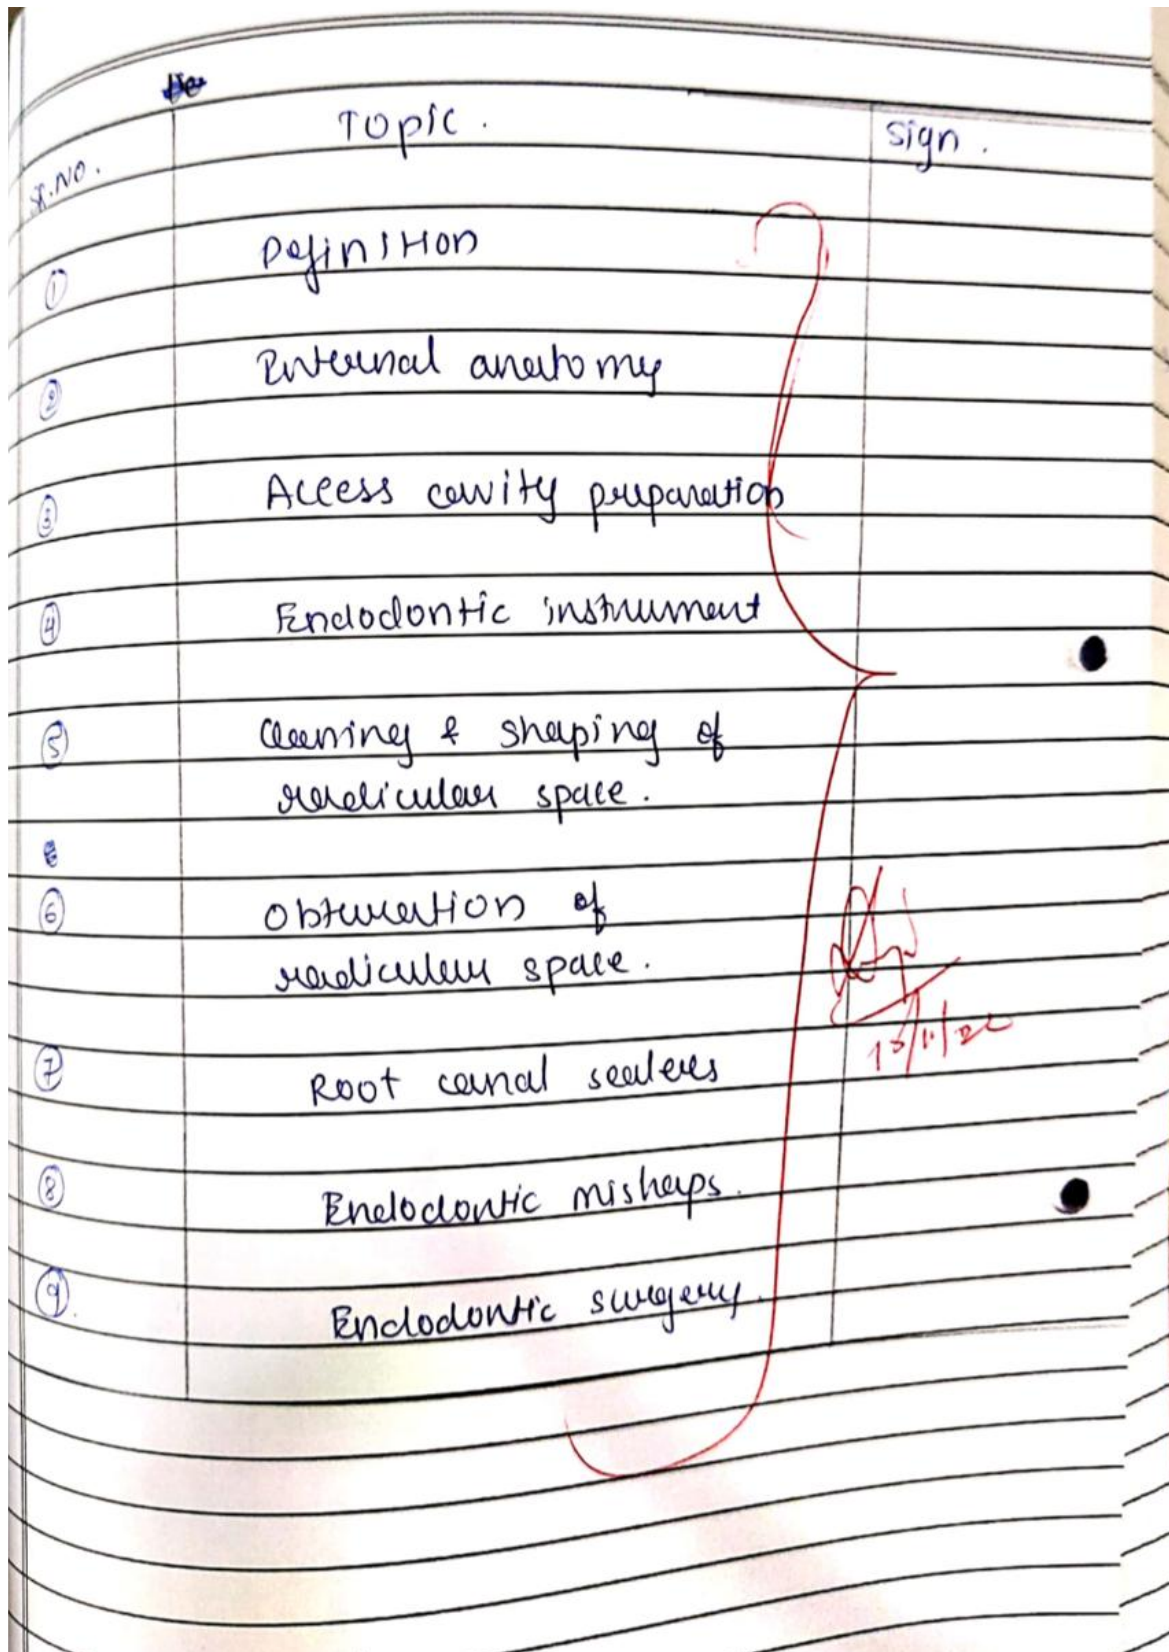 Topic.
Sign.
Sr.No.
① Definition
② Internal anatomy
③ Access cavity preparation
④ Endodontic instrument
⑤ Cleaning & shaping of
radicular space.
⑥ Obturation of
radicular space.
⑦ Root canal sealers
⑧ Endodontic mishaps.
⑨. Endodontic surgery.